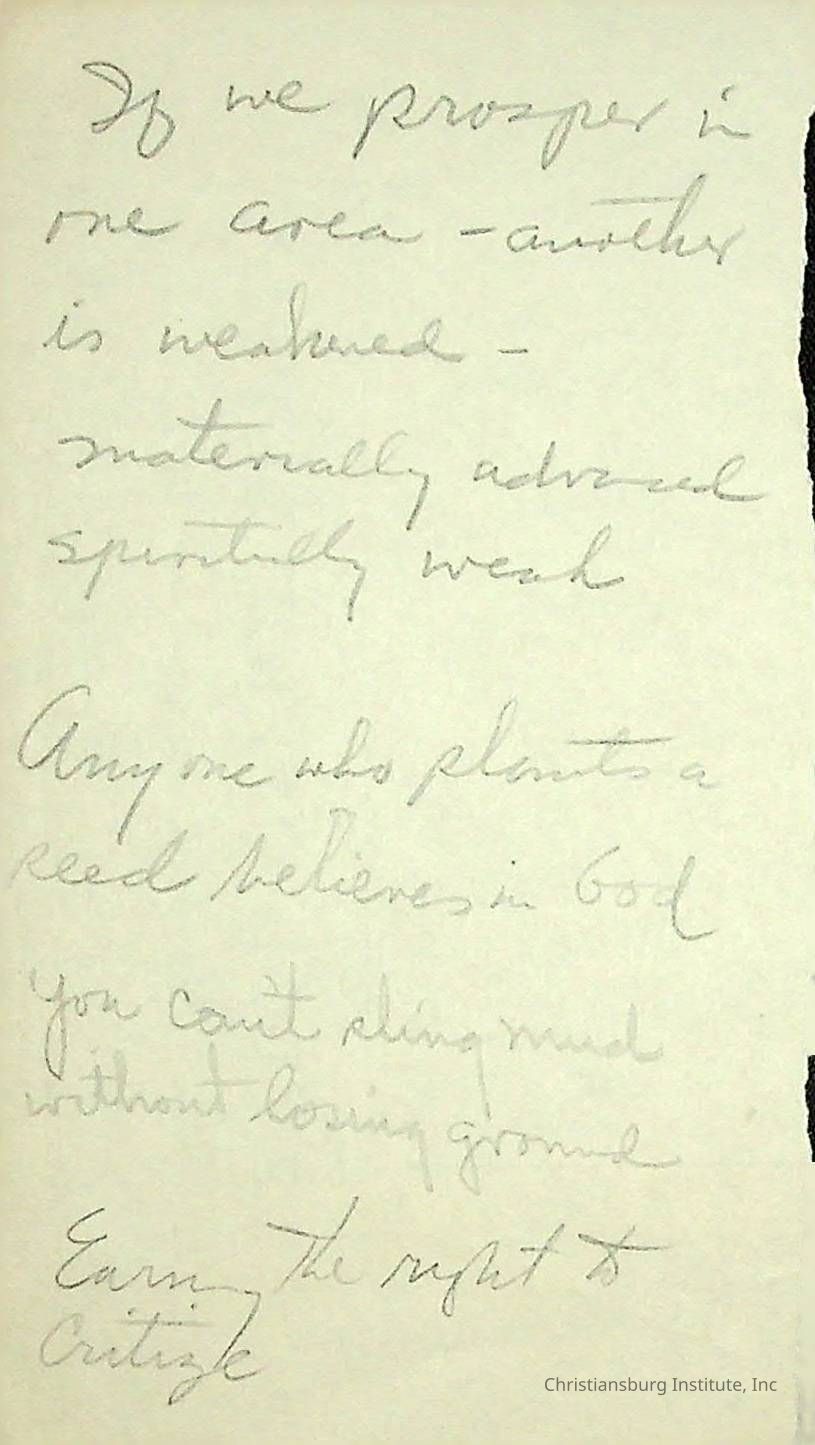 If we prosper in
one area - another
is weakened -
materially advanced
spiritully weak
Anyone who plants a
seed believes in God
You can't sling mud
without losing ground
Earn the right to
Critize
Christiansburg Institute, Inc